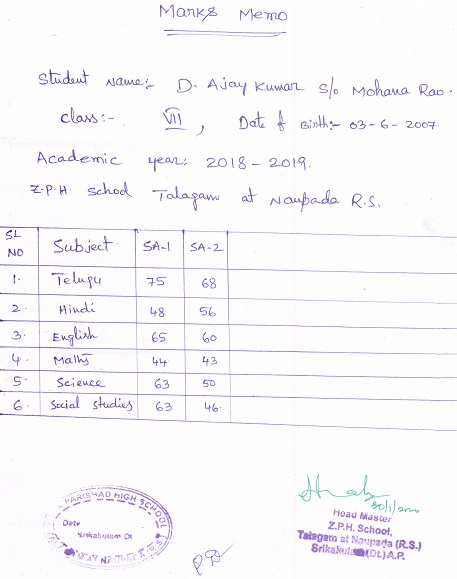 Marks Memo
Student Name:- D. Ajay Kumar S/o Mohana Rao.
class:- VII, Date of Birth:- 03-6-2007.
Academic year: 2018-2019.
Z.P.H. School Talagam at Naupada R.S.
SL NO Subject SA-1 SA-2
1. Telugu 75 68
2. Hindi 48 56
3. English 65 60
4. Maths 44 43
5. Science 63 50
6. Social studies 63 46
PARISHAD HIGH SCHOOL
Date
Srikakulam Dt
Head Master
Z.P.H. School,
Talagam at Naupada (R.S.)
Srikakulam (Dt.) A.P.